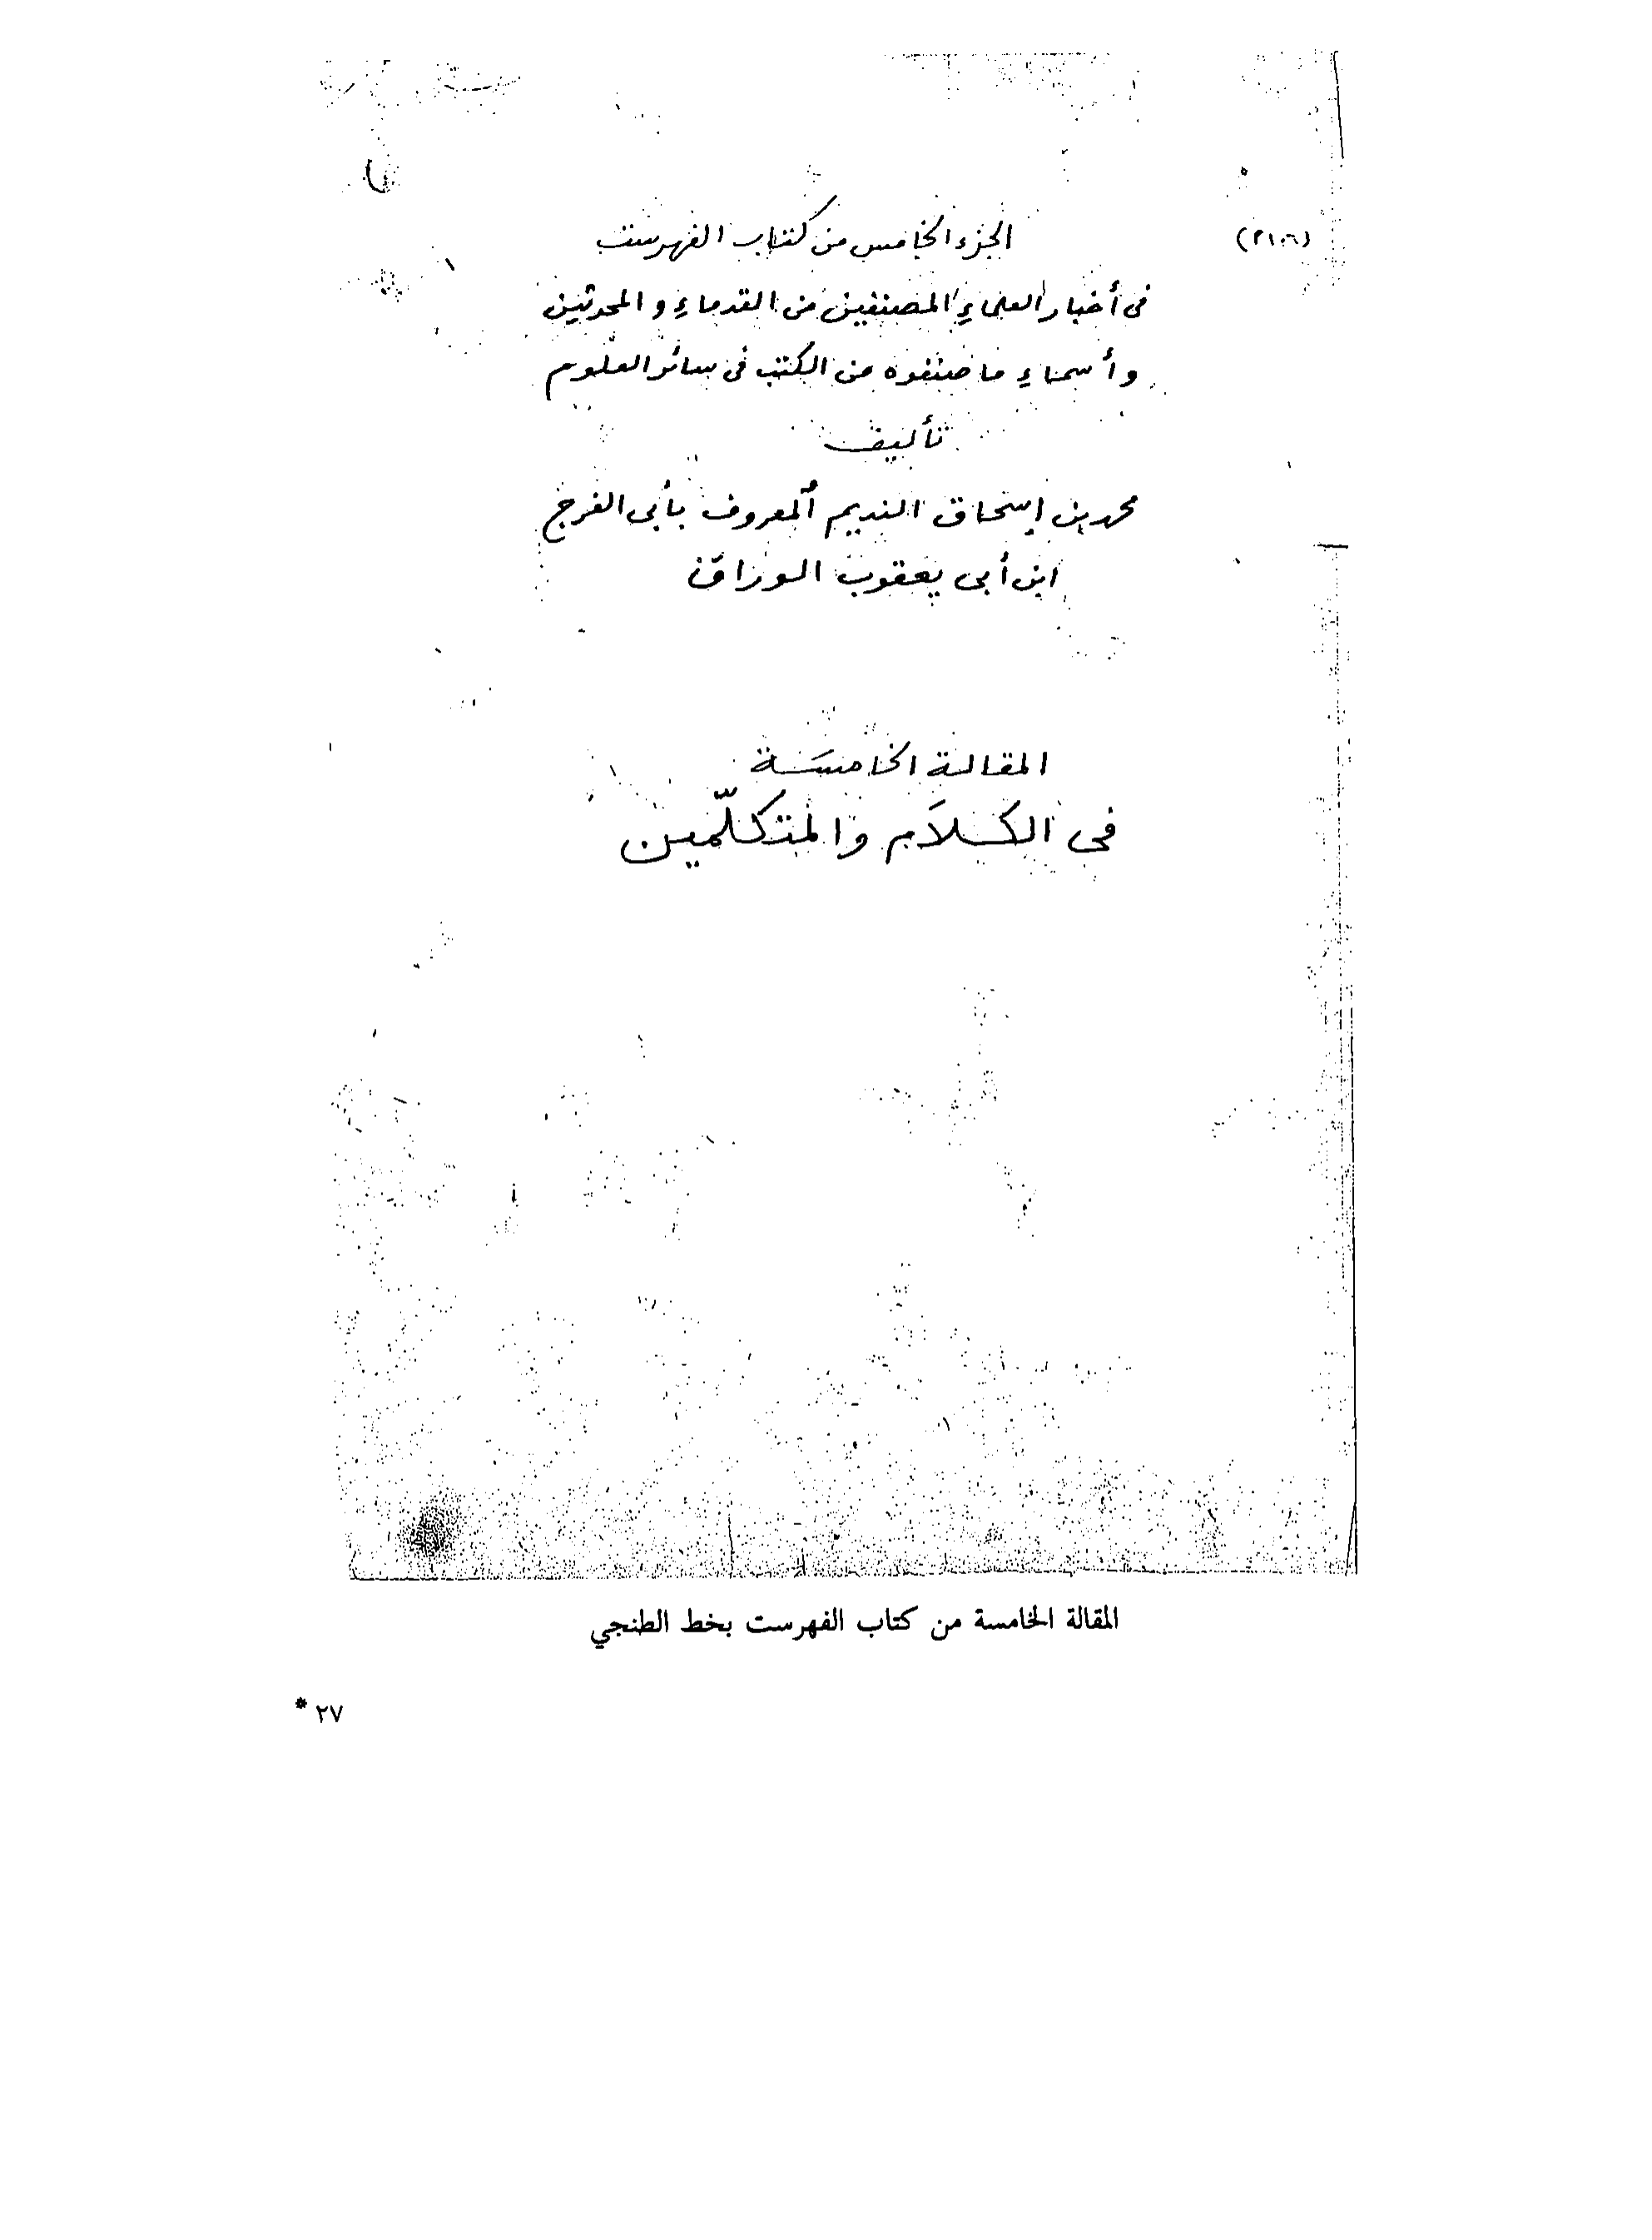 الجزء الخامس من كتاب الفهرست
في أخبار العلماءِ المصنفين من القدماءِ والمحدثين
وأسماءِ ما صنفوه من الكتب في سائر العلوم
تأليف
محمد بن إسحاق النديم المعروف بأبي الفرج
ابن أبي يعقوب الوراق
المقالة الخامسَة
في الكلاَم والمتكلّمين
المقالة الخامسة من كتاب الفهرست بخط الطنجي
٢٧ *